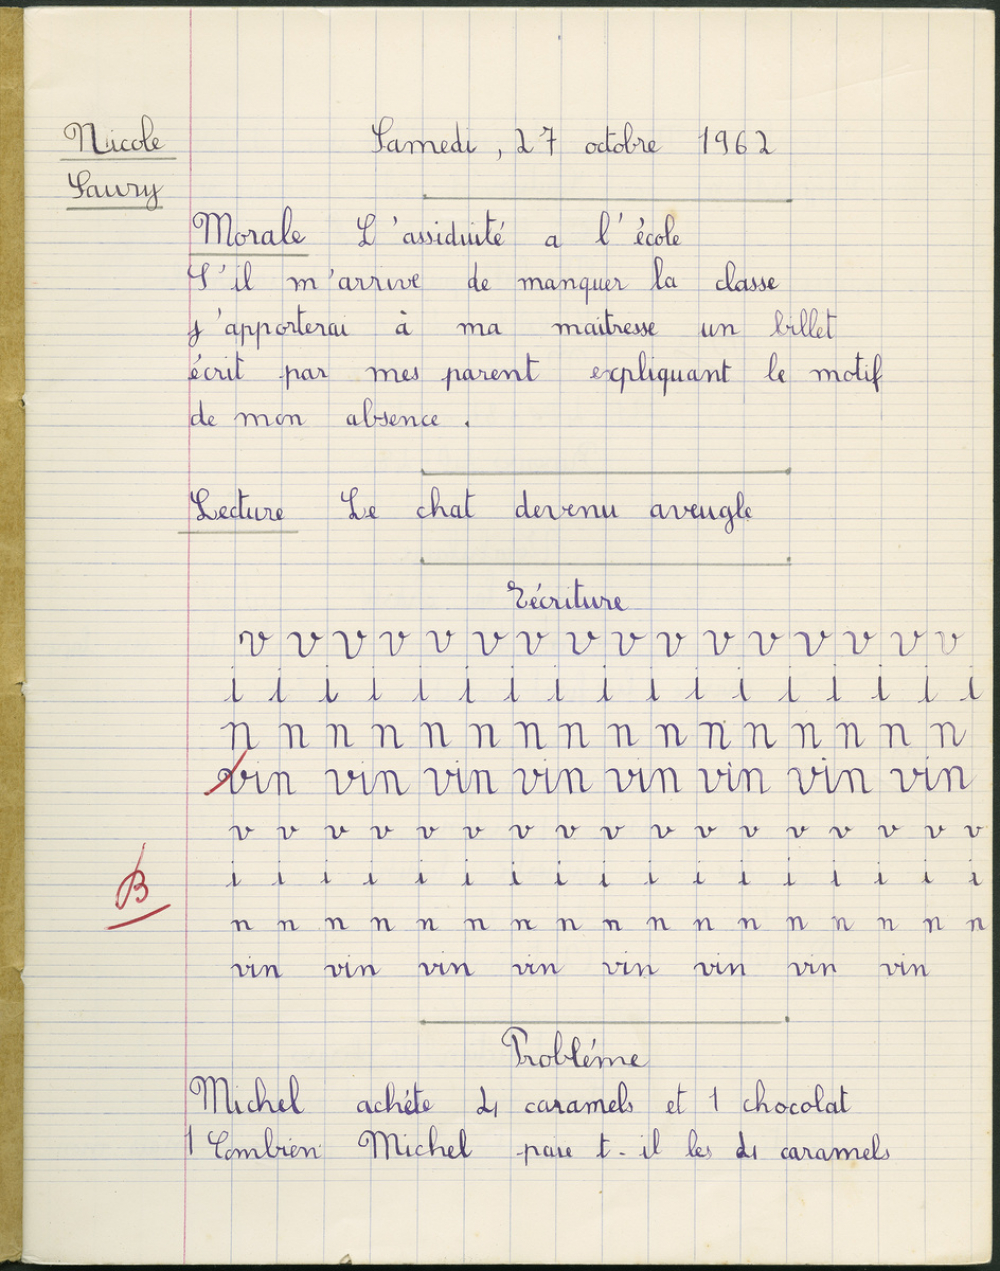 Nicole
Saury
Samedi, 27 octobre 1962
Morale L'assiduité a l'école
S'il m'arrive de manquer la classe
j'apporterai à ma maitresse un billet
écrit par mes parent expliquant le motif
de mon absence.
Lecture Le chat devenu aveugle
Eécriture
v v v v v v v v v v v v v v v v
i i i i i i i i i i i i i i i i i
n n n n n n n n n n n n n n n n
vin vin vin vin vin vin vin vin
v v v v v v v v v v v v v v v v v
i i i i i i i i i i i i i i i i i
B
n n n n n n n n n n n n n n n n n
vin vin vin vin vin vin vin vin
Probléme
Michel achéte 4 caramels et 1 chocolat
1 Combien Michel paie t-il les 4 caramels